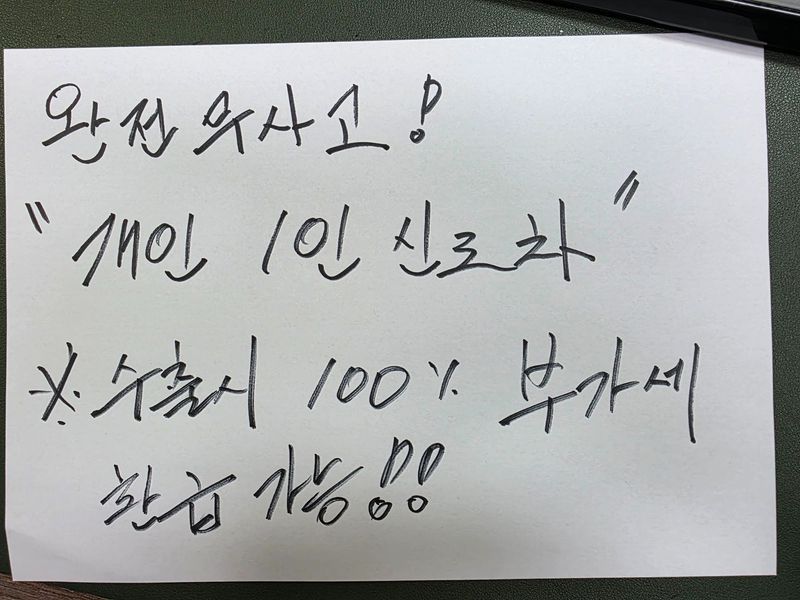 완전무사고!
"개인 1인 신조차"
※수출시 100% 부가세
환급 가능!!